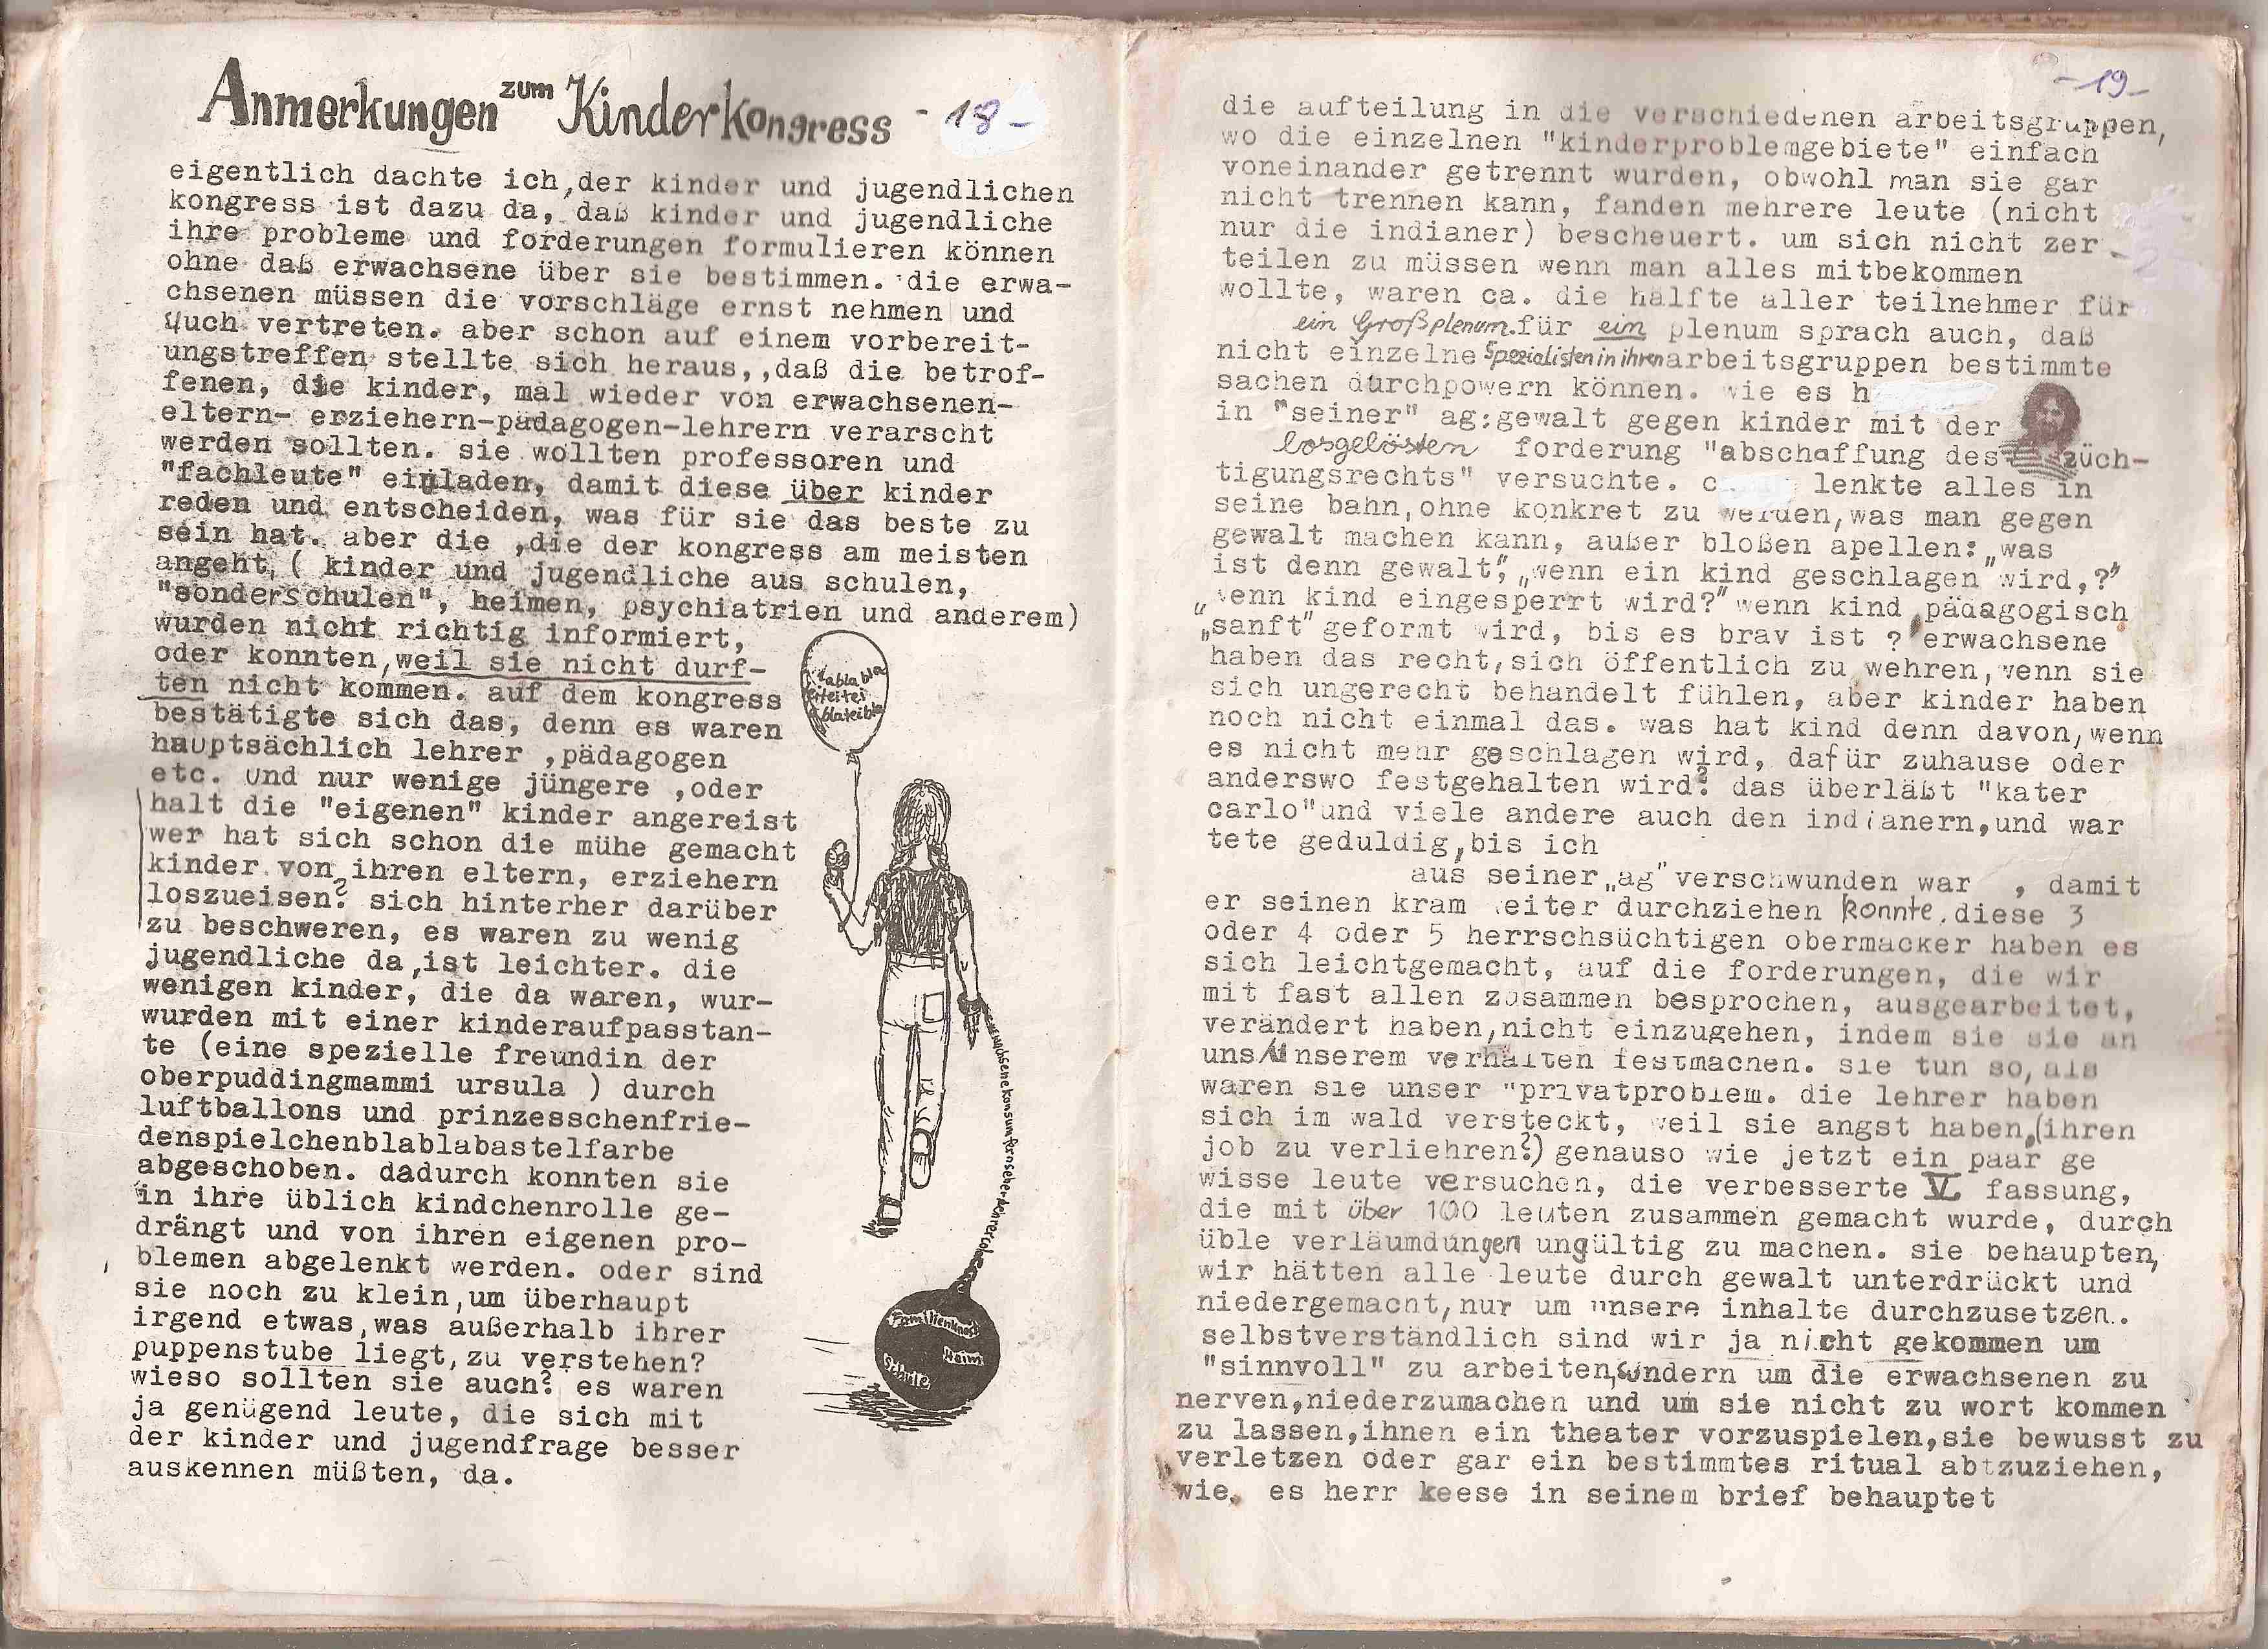 Anmerkungen zum Kinderkongress - 18 -
eigentlich dachte ich,der kinder und jugendlichen
kongress ist dazu da, daß kinder und jugendliche
ihre probleme und forderungen formulieren können
ohne daß erwachsene über sie bestimmen. die erwa-
chsenen müssen die vorschläge ernst nehmen und
auch vertreten. aber schon auf einem vorbereit-
ungstreffen stellte sich heraus,,daß die betrof-
fenen, die kinder, mal wieder von erwachsenen-
eltern- erziehern-pädagogen-lehrern verarscht
werden sollten. sie wollten professoren und
"fachleute" einladen, damit diese über kinder
reden und entscheiden, was für sie das beste zu
sein hat. aber die ,die der kongress am meisten
angeht, ( kinder und jugendliche aus schulen,
"sonderschulen", heimen, psychiatrien und anderem)
wurden nicht richtig informiert,
oder konnten,weil sie nicht durf-
ten nicht kommen. auf dem kongress
bestätigte sich das, denn es waren
hauptsächlich lehrer ,pädagogen
etc. und nur wenige jüngere ,oder
halt die "eigenen" kinder angereist
wer hat sich schon die mühe gemacht
kinder von ihren eltern, erziehern
loszueisen? sich hinterher darüber
zu beschweren, es waren zu wenig
jugendliche da,ist leichter. die
wenigen kinder, die da waren, wur-
wurden mit einer kinderaufpasstan-
te (eine spezielle freundin der
oberpuddingmammi ursula ) durch
luftballons und prinzesschenfrie-
denspielchenblablabastelfarbe
abgeschoben. dadurch konnten sie
in ihre üblich kindchenrolle ge-
drängt und von ihren eigenen pro-
blemen abgelenkt werden. oder sind
sie noch zu klein,um überhaupt
irgend etwas,was außerhalb ihrer
puppenstube liegt,zu verstehen?
wieso sollten sie auch? es waren
ja genügend leute, die sich mit
der kinder und jugendfrage besser
auskennen müßten, da.
blabla
eiteitei
blateibla
Familienknast
Heim
Schule
- 19 -
die aufteilung in die verschiedenen arbeitsgruppen,
wo die einzelnen "kinderproblemgebiete" einfach
voneinander getrennt wurden, obwohl man sie gar
nicht trennen kann, fanden mehrere leute (nicht
nur die indianer) bescheuert. um sich nicht zer-
teilen zu müssen wenn man alles mitbekommen
wollte, waren ca. die hälfte aller teilnehmer für
ein Großplenum.für ein plenum sprach auch, daß
nicht einzelne Spezialisten in ihren arbeitsgruppen bestimmte
sachen durchpowern können. wie es h
in "seiner" ag:gewalt gegen kinder mit der
losgelösten forderung "abschaffung des züch-
tigungsrechts" versuchte. c lenkte alles in
seine bahn,ohne konkret zu werden,was man gegen
gewalt machen kann, außer bloßen apellen:„was
ist denn gewalt",„wenn ein kind geschlagen"wird,?"
„wenn kind eingesperrt wird?"wenn kind pädagogisch
„sanft"geformt wird, bis es brav ist ? erwachsene
haben das recht,sich öffentlich zu wehren,wenn sie
sich ungerecht behandelt fühlen, aber kinder haben
noch nicht einmal das. was hat kind denn davon,wenn
es nicht mehr geschlagen wird, dafür zuhause oder
anderswo festgehalten wird? das überläßt "kater
carlo"und viele andere auch den indianern,und war
tete geduldig,bis ich
aus seiner„ag"verschwunden war , damit
er seinen kram weiter durchziehen konnte.diese 3
oder 4 oder 5 herrschsüchtigen obermacker haben es
sich leichtgemacht, auf die forderungen, die wir
mit fast allen zusammen besprochen, ausgearbeitet,
verändert haben,nicht einzugehen, indem sie sie an
uns/unserem verhalten festmachen. sie tun so,als
wären sie unser "privatproblem. die lehrer haben
sich im wald versteckt, weil sie angst haben,(ihren
job zu verliehren?) genauso wie jetzt ein paar ge
wisse leute versuchen, die verbesserte V. fassung,
die mit über 100 leuten zusammen gemacht wurde, durch
üble verläumdungen ungültig zu machen. sie behaupten,
wir hätten alle leute durch gewalt unterdrückt und
niedergemacht,nur um unsere inhalte durchzusetzen..
selbstverständlich sind wir ja nicht gekommen um
"sinnvoll" zu arbeiten,sondern um die erwachsenen zu
nerven,niederzumachen und um sie nicht zu wort kommen
zu lassen,ihnen ein theater vorzuspielen,sie bewusst zu
verletzen oder gar ein bestimmtes ritual abtzuziehen,
wie. es herr keese in seinem brief behauptet